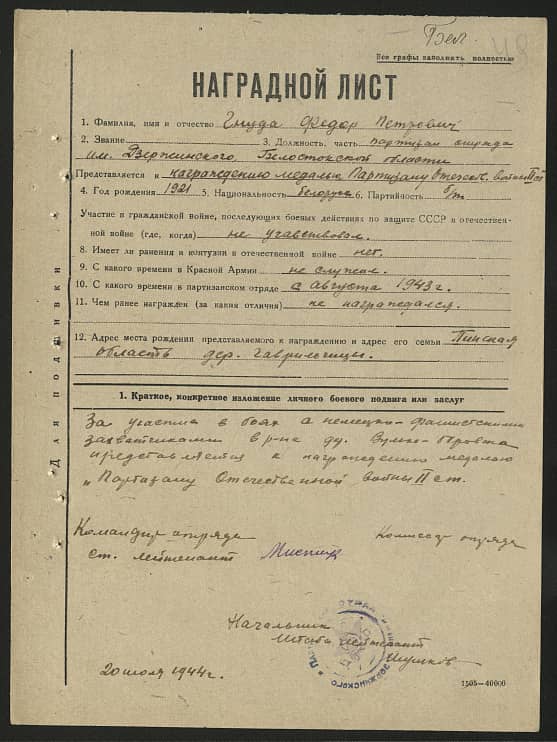 Бел.
49
Все графы заполнять полностью
НАГРАДНОЙ ЛИСТ
1. Фамилия, имя и отчество Гнуда Федор Петрович
2. Звание 3. Должность, часть партизан отряда
им. Дзержинского, Белостокской области
Представляется к награждению медалью Партизану Отечеств. войны II ст
4. Год рождения 1921 5. Национальность белорус 6. Партийность б/п.
Участие в гражданской войне, последующих боевых действиях по защите СССР и отечествен-
ной войне (где, когда) не участвовал.
8. Имеет ли ранения и контузии в отечественной войне нет.
9. С какого времени в Красной Армии не служил.
10. С какого времени в партизанском отряде с августа 1943 г.
11. Чем ранее награжден (за какия отличия) не награждался.
12. Адрес места рождения представляемого к награждению и адрес его семьи Пинская
область дер. Гавриленчицы.
Для подшивки
1. Краткое, конкретное изложение личного боевого подвига или заслуг
За участие в боях с немецко-фашистскими
захватчиками в р-не
представляется к награждению медалью
„Партизану Отечественной войны II ст.
Командир отряда Комиссар отряда
ст. лейтенант
Начальник
Штаба лейтенант
Шумков
20 июля 1944 г.
1505—40000